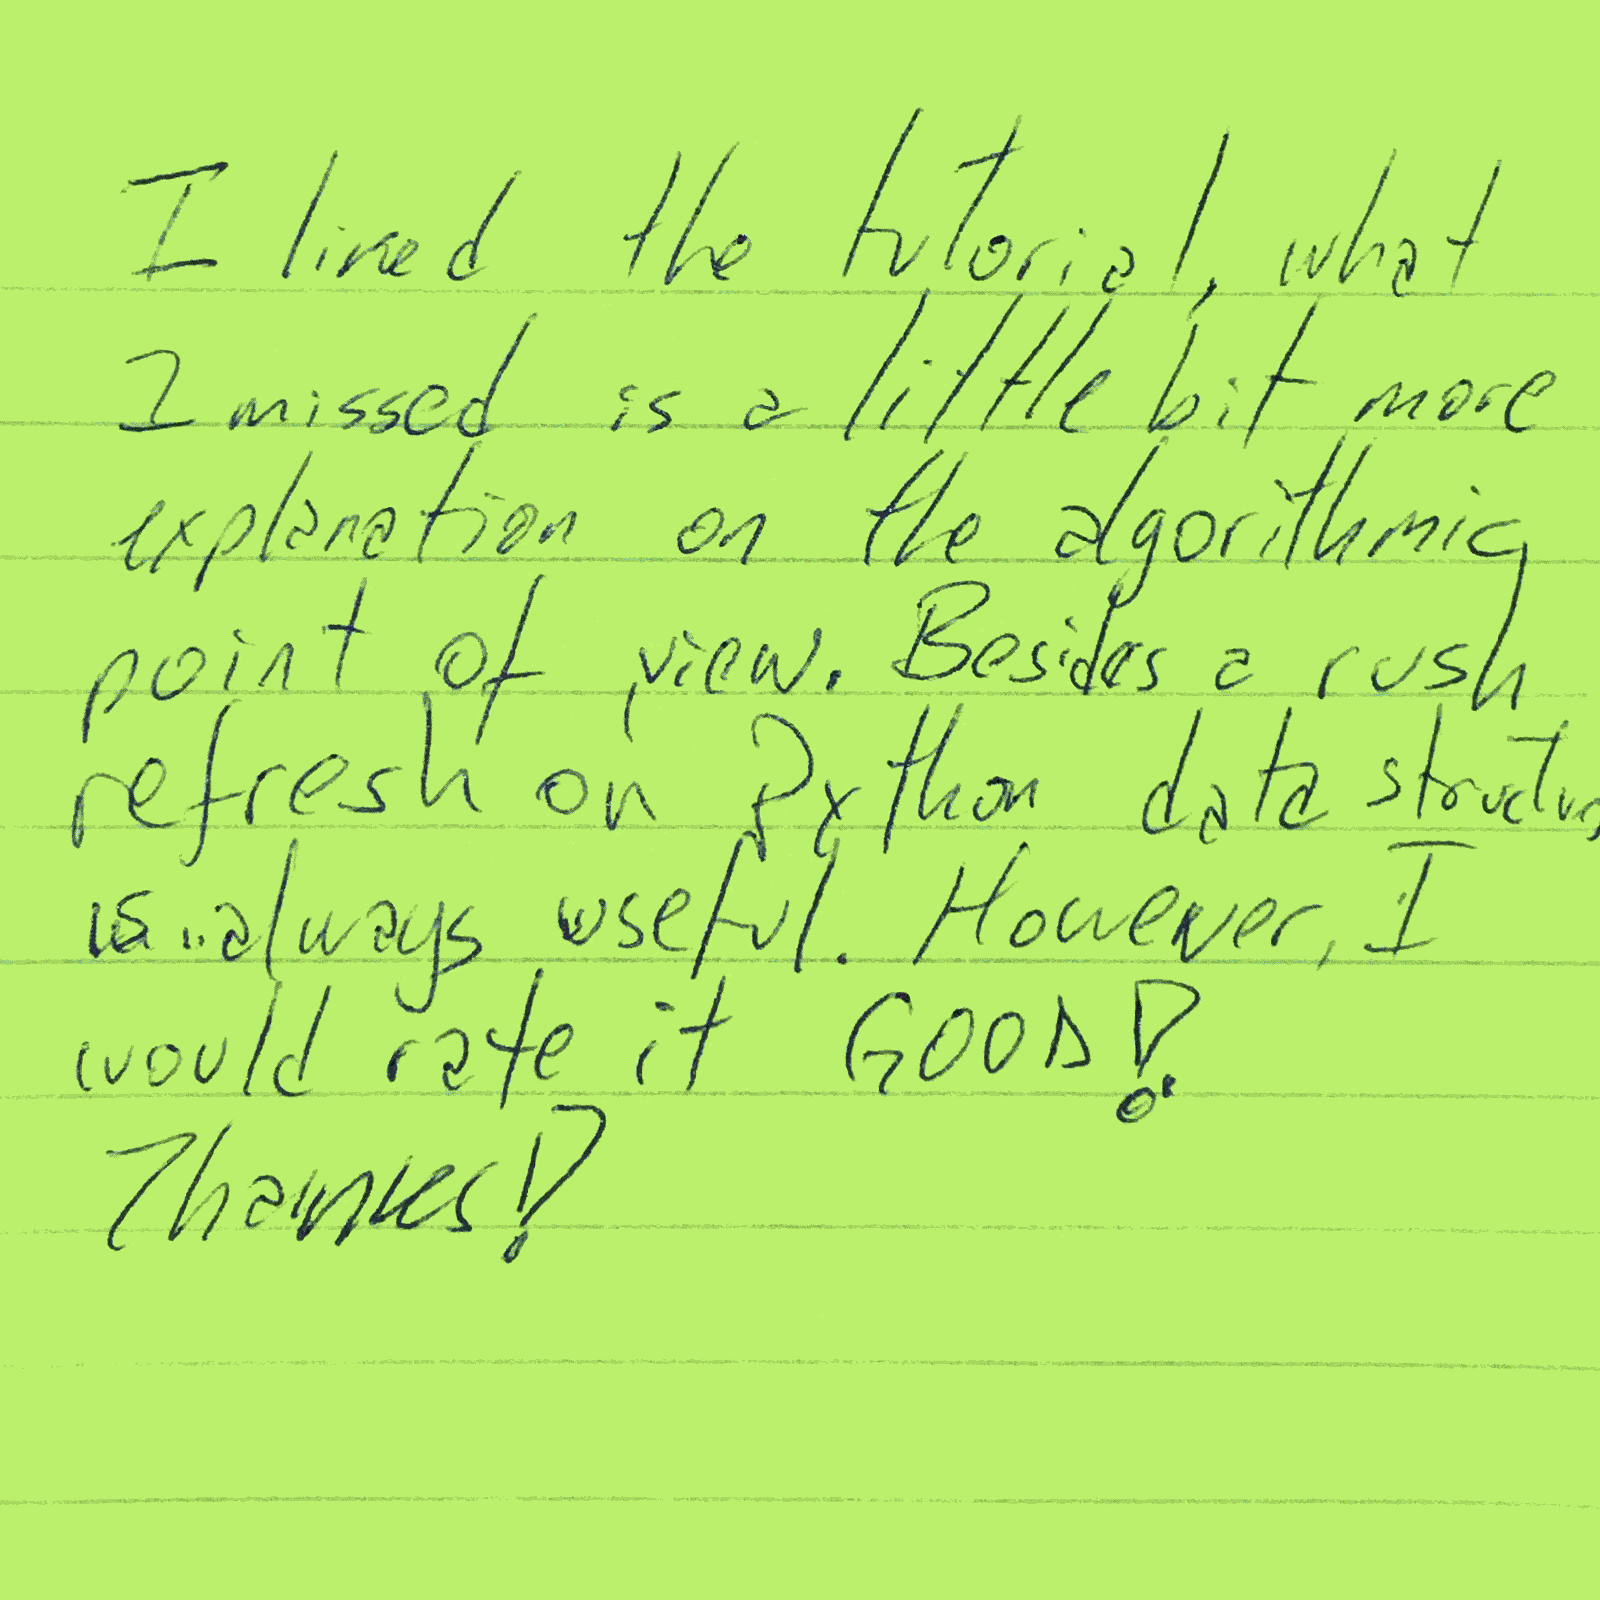 I liked the tutorial, what
I missed is a little bit more
explanation on the algorithmic
point of view. Besides a rush
refresh on Python data structur
is always useful. However, I
would rate it GOOD!
Thanks!